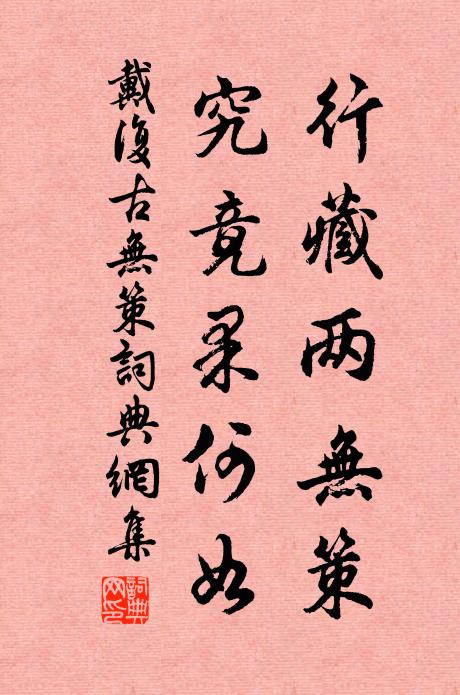 行藏两無策
究竟果何如
戴復古無策詞典網集
詞典網印